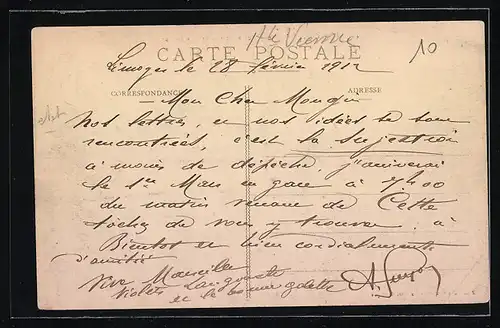 Hte Vienne
10
CARTE POSTALE
Limoges le 28 février 1912
CORRESPONDANCE
ADRESSE
Mon Cher Mougin
Nos lettres, et nos idées se sont
rencontrées, c'est la sujestion
à moins de dépêche, j'arriverai
le 1er Mars en gare à 7h00
du matin venant de Cette
tachez de vous y trouver. à
Bientot et bien cordialement
d'amitié
Vive Marseille
Violet Languoste
et la bonne galette